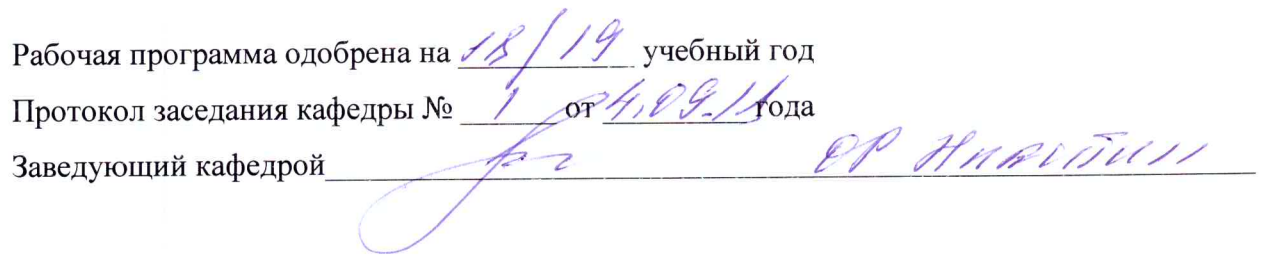 Рабочая программа одобрена на 18/19 учебный год
Протокол заседания кафедры № 1 от 4.09.18 года
Заведующий кафедрой ОР Никитин